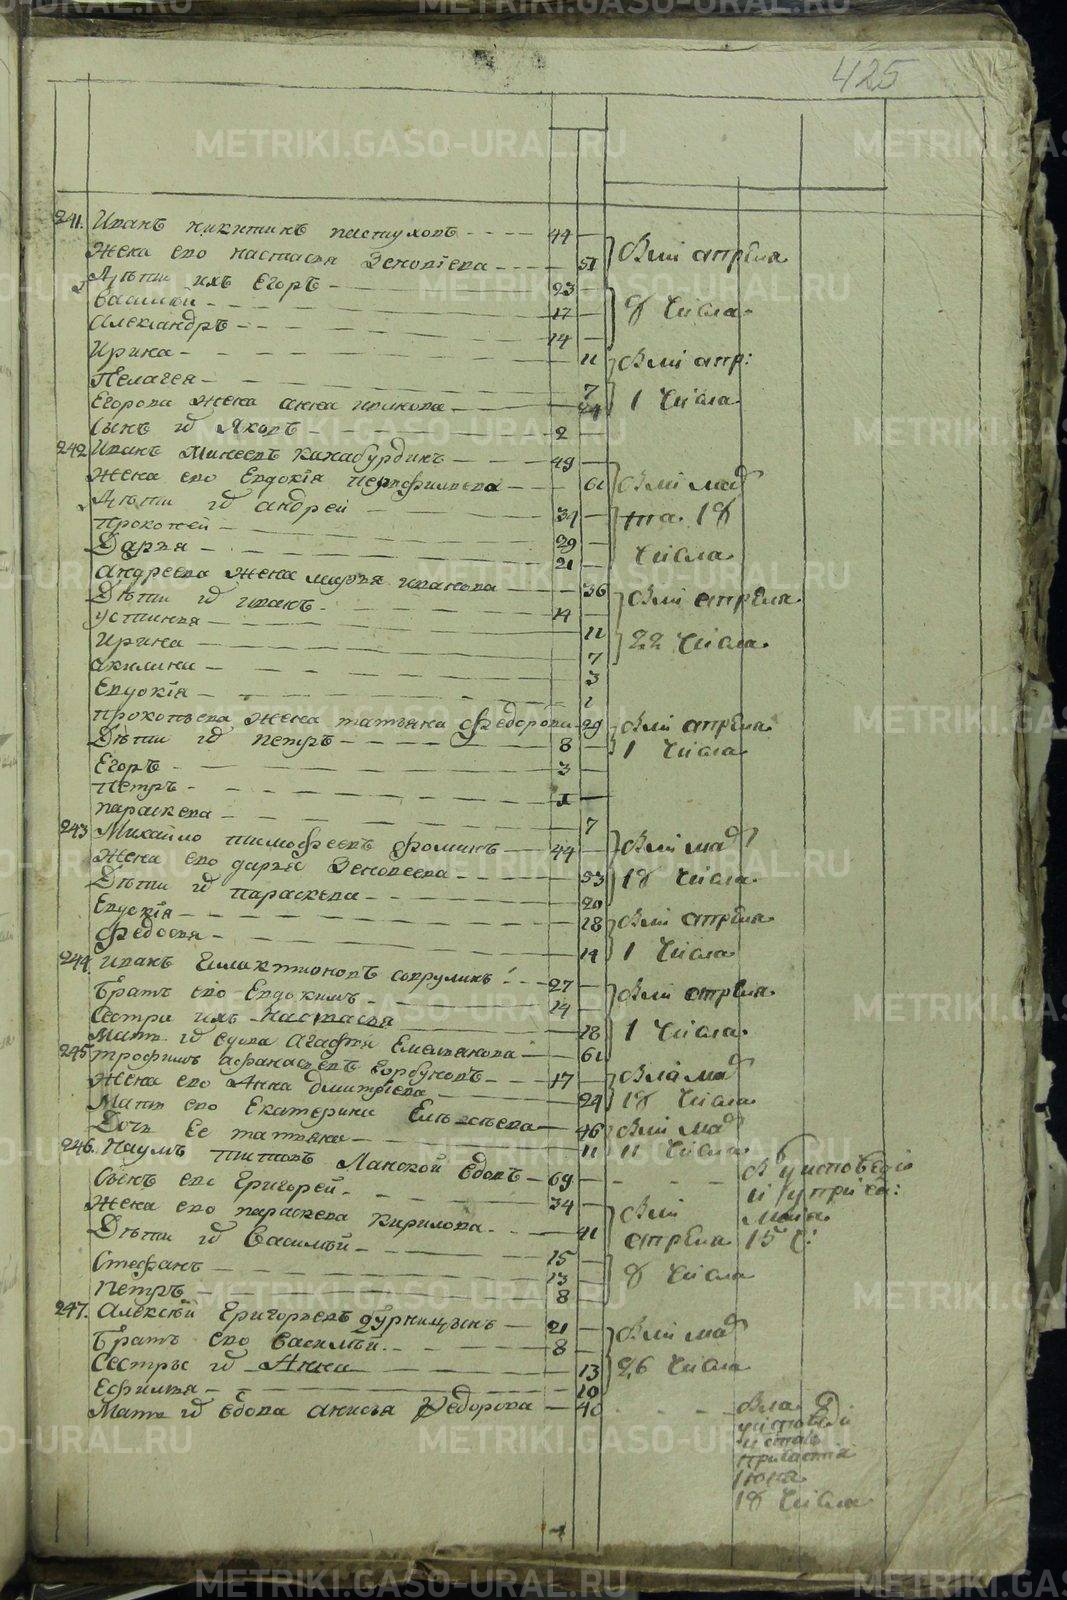 425
241. Иванъ никитинъ пастуховъ 44
Жена его настасья Зеновѣева 51
Дѣти ихъ Егоръ 23
Василѣй 17
Александръ 14
Ирина 11
Пелагея 7
Егорова жена анна иванова 24
Сынъ его Яковъ 2
242 Иванъ Минеевъ 49
Жена его Евдокѣя 61
Дѣти ихъ андрей 31
Прокопей 29
Дарья 21
андреева жена марья иванова 36
Дѣти ихъ иванъ 14
устинья 11
Ирина 7
акилина 3
Евдокѣя 1
прокопьева жена татьяна федорова 29
Дѣти ихъ петръ 8
Егоръ 3
Петръ 1
параскева 7
243 Михайло тимофеевъ фоминъ 44
Жена его дарья Зеновеева 53
Дѣти ихъ параскева 20
Евдокѣя 18
федосья 14
244. иванъ 27
Братъ его Евдокимъ 14
Сестра ихъ настасья 18
Мать ихъ вдова агафья Емельянова 61
245 трофимъ афанасьевъ горбуновъ 17
Жена его Анна дмитрѣева 24
Мать его Екатерина 46
Дочь ее татьяна 11
246. Наумъ титовъ Ланской вдовъ 69
Сынъ его григорей 34
Жена его параскева кирилова 41
Дѣти ихъ Василѣй 15
Стефанъ 13
Петръ 8
247. Алексѣй григорьевъ дурницынъ 21
Братъ его василѣй 8
Сестры ихъ Анна 13
Ефимья 10
Мать ихъ вдова анисья федорова 40
апреля
8 числа
апр:
1 числа
18
числа
апреля
22 числа
апреля
1 числа
18 числа
апреля
1 числа
апреля
1 числа
18 числа
11 числа
маия
апреля 15 ч:
8 числа
26 числа
18 числа
METRIKI.GASO-URAL.RU